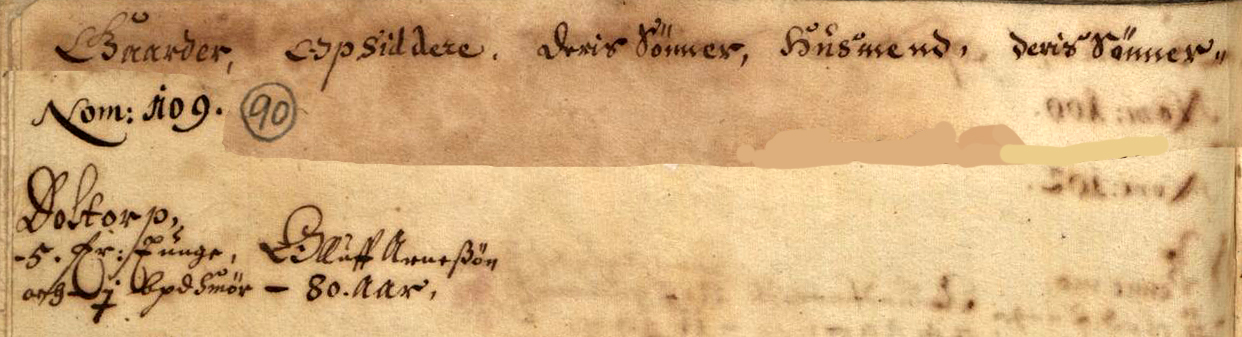 Gaarder, Opsiddere. deris Sönner, Huusmend, deris Sönner.
Nom: 109. 90
Boltorp,
5. fr: tunge, Olluff Arneßön
och - j bpd Smör - 80. Aar,